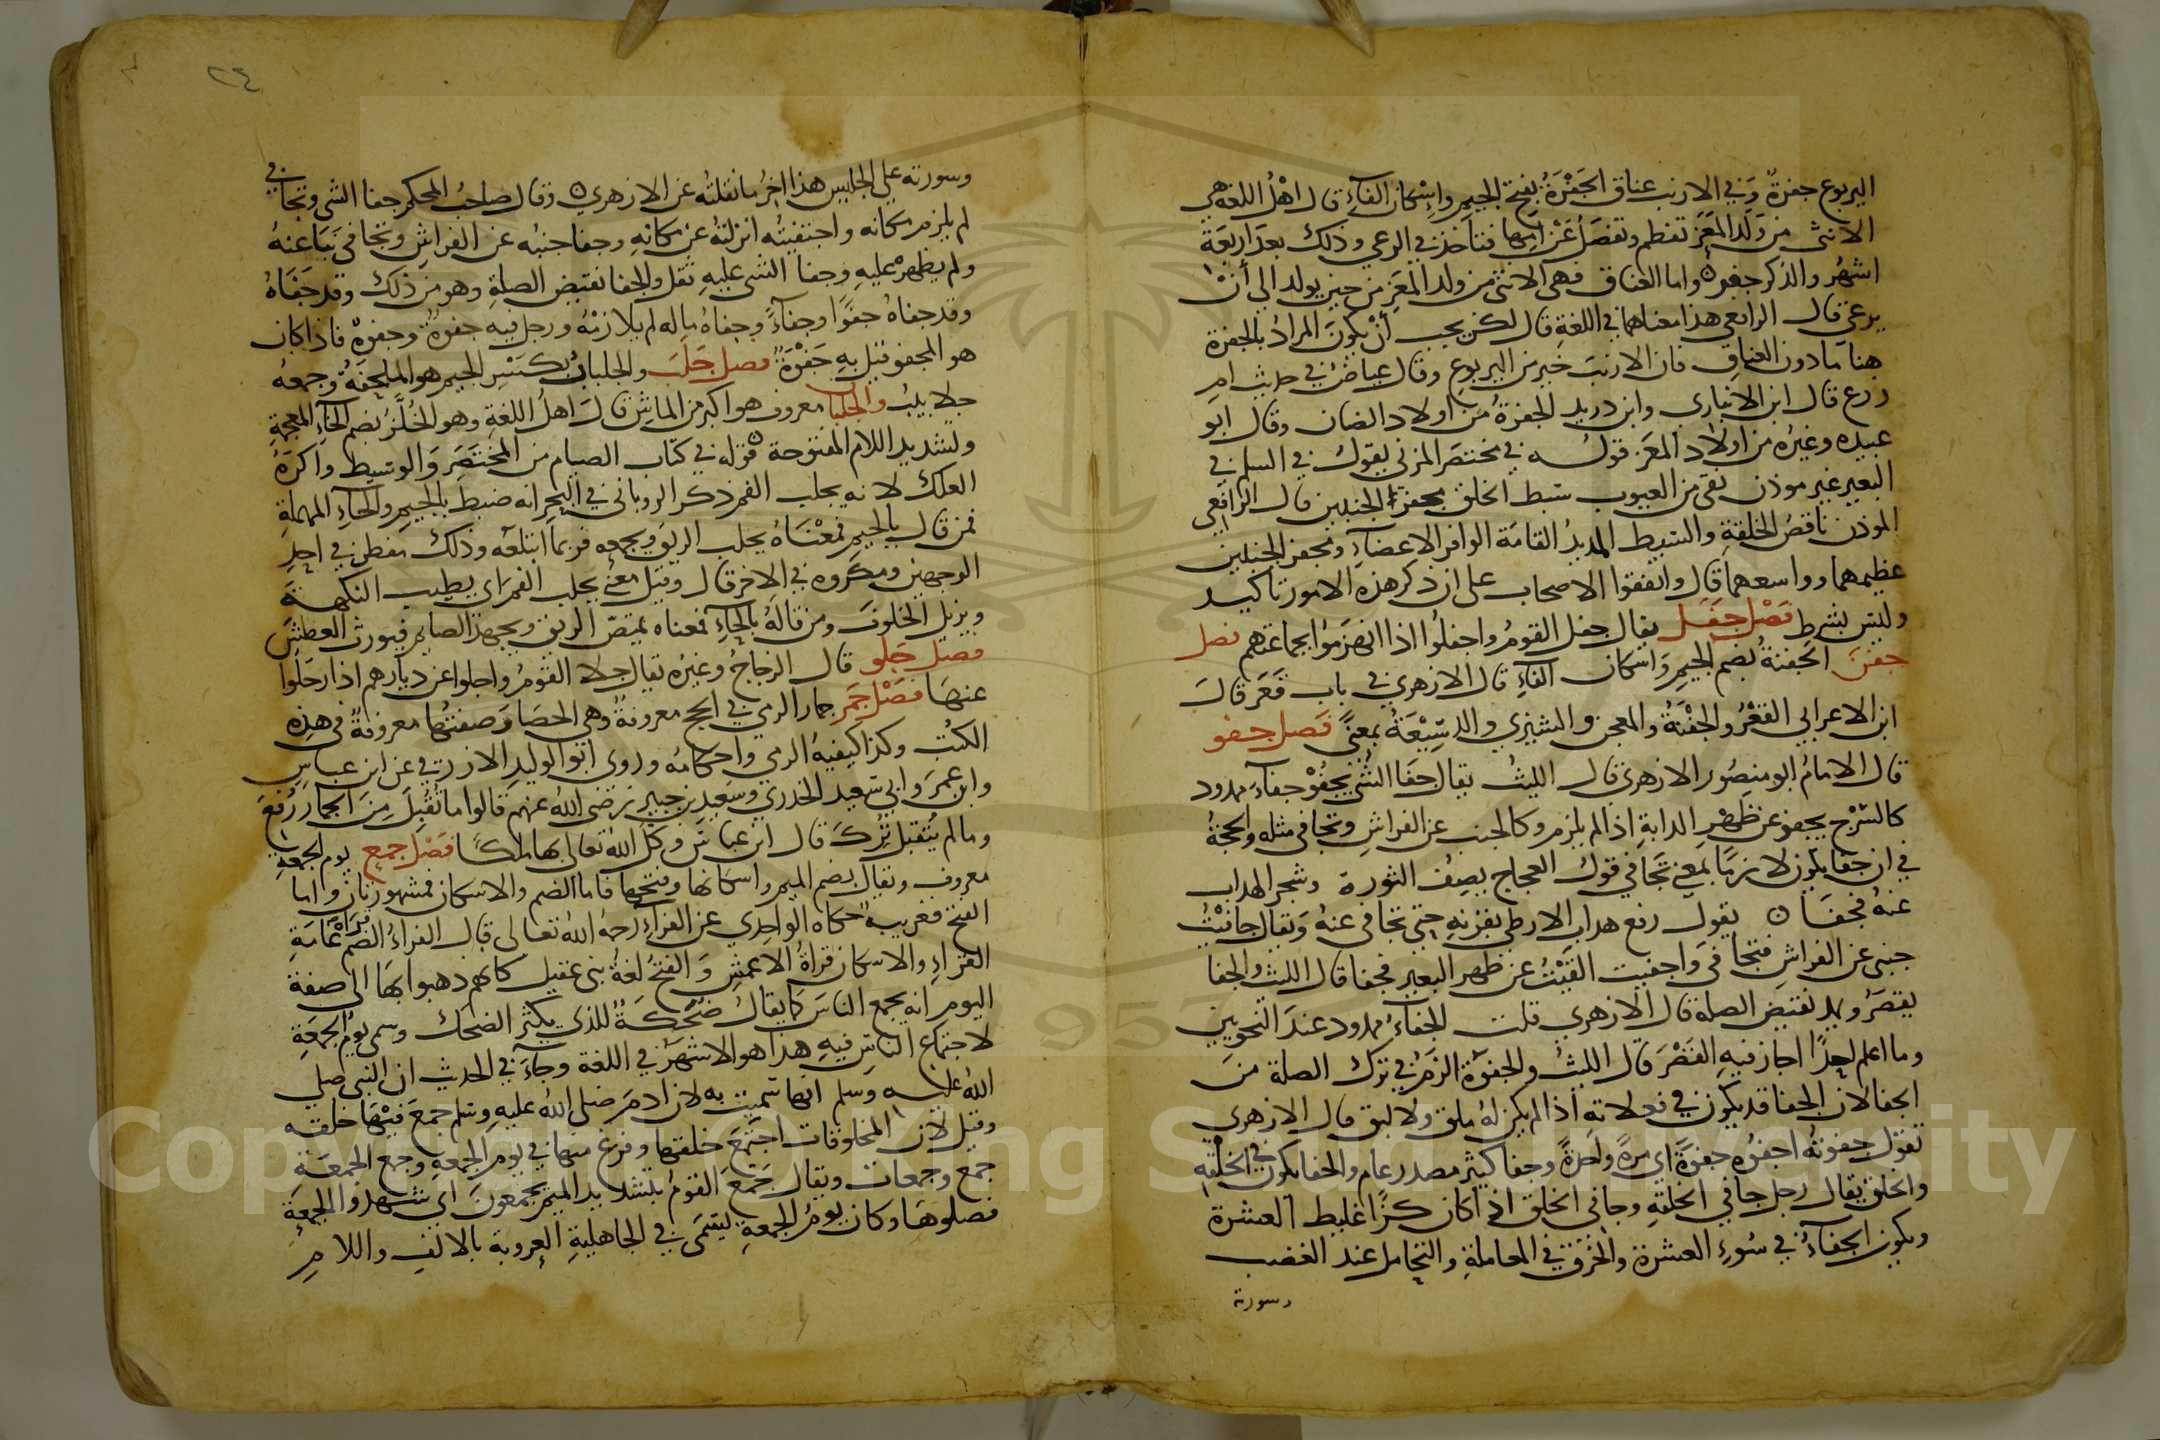 اليربوع جفرة وفي الارنب عناق الجَفْرَةُ بفتح الجيم وإسْكان الفآءِ قال اهْلُ اللغه هي
الانثى من وَلَد المَعَز تفطم وتفصَلُ عَنْ امّها فتاخذ في الرعي وذلك بعدَ اربعَة
اشهُر والذكر جفر واما العناق فهي الانثى من ولد المَعَز من حين يولد الى أنْ
يرعى قال الرافعي هذا معناهما في اللغة قال لكن يجب أنْ يكونَ المرادُ بالجفرة
هنا مَا دون العناق فان الارنبَ خير من اليربوع وقال عياض في حديث ام
زرع قال ابن الانباري وابن دريد الجفرةُ من اولاد الضان وقال ابو
عبيده وغيرُه من اولاد المعَز قولـه في مختصَر المزني يقول في السلم في
البعير غير موذن نقي من العيوب سَبط الخلق مجفر الجنبين قال الرافعي
الموذن ناقصُ الخلقةِ والسَّبط المديدُ القامَة الوافر الاعضآءِ ومجفر الجنبين
عظيمهما وواسعهما قال واتفقوا الاصحاب على ان ذكر هذه الامور تاكيد
وليسَ بشرط فَصْل جَفَل يقال جفل القومُ واجفلُوا اذا انهزَمُوا بجماعتهم فصل
جفن الجفنةُ بضم الجيم وَاسكان الفآءِ قال الازهري في باب قَعَرَ قالَ
ابن الاعرابي القَعْرُ والجَفْنَةُ والمعجن والشيزي والدسِّيْعَةُ بمعنًى فَصل جفو
قال الامامُ ابو منصُور الازهري قال الليثُ يقال جَفا الشئ يجفُوْ جفآءً ممدود
كالسّرْج يجفو عن ظهْرِ الدابةِ اذا لم يلزم وكالجنب عن الفراشِ وتجافى مثله والحجةُ
في ان جفا يكون لازمًا بمعنى تجَافى قول العجاج يصِفُ الثورة وشجر الهداب
عنهُ فجَفَا ۞ يقول رفع هداب الارطى بقرنهِ حتى تجافى عنهُ وَيقال جافيْتُ
جنبى عن الفراشِ فتجَافَى وَاجفيت القَتَبَ عن ظهر البعير فجفا قال الليث والجفا
يقصَرُ ويمد نقيض الصلة قال الازهري قلت الجفآءُ ممدود عند النحويين
وما اعلم احدًا اجاز فيهِ القَصْرَ قال الليثُ والجفوَةُ الزَمُ في ترك الصلة من
الجفا لان الجفا قد يكون في فعلاته اذا لم يكن لهُ ملق ولا لبق قال الازهري
تقول جفوتهُ اجفوُه جفوَةً اي مرةً واحدةً وجفا كثيرً مصدر عام والجفا يكون في الخلقه
والخلق يقال رجل جافي الخلقةِ وجافي الخلق اذا كان كزًا غليظ العشرة
ويكون الجفآءُ في سُوءِ العشرة والخُرْق في المعاملةِ والتحامل عند الغضب
وسورته
٢٤
وسورته على الجليس هذا اخرُ ما نقلتُه عن الازهري ۞ وقال صاحبُ المحكم جفا الشى وتجافى
لم يلزم مكانه واجتفيتُه انزلتهُ عن مكانهِ وجفا جنبُه عن الفراشِ وتجافى نَبَا عنهُ
ولم يطْمئن عليهِ وجفا الشى عليه ثقل والجفا نقيض الصلةِ وهو من ذلك وقد جَفَاهُ
وقد جفاهُ جفوًا وجفآءً وجفاهُ ماله لم يلازمْهُ ورجل فيه جفوةٌ وجفوةٌ فاذا كان
هو المجفو قيل بهِ جَفْوَةٌ فصل جَلَبَ والجلبابُ بكسْرِ الجيم هو الملحفَةُ وجمعهُ
جلابيب والجُلَّبان معروف هو اكبر من الماش قال اهلُ اللغة وهو الخُلَّر بضم الخآءِ المعجمةِ
وتشديد اللام المفتوحة قوله في كتاب الصيام من المختصَر وَالوسيط واكرَهُ
العلك لانه يجلب الفم ذكر الروياني في البحر انه ضبط بالجيم والحآء المهملةِ
فمن قال بالجيم فمعْنَاهُ يجلب الريق ويجمعه فربما ابتلعَهُ وذلك يفطر في احد
الوجهين ومكروه في الاخر قال وقيل معنى يجلب الفم اي يطيب النكهـةَ
ويزيل الخلوف ومن قالهُ بالحآءِ فمعناه يمتصّ الريق ويجهد الصايم فيورث العطشَ
فصل جَلو قال الزجاجُ وغيرُه يقال جلا القومُ واجلوا عن ديارهم اذا رحَلُوا
عنهَا فَصْل جَمَر جمار الرمي في الحج معروفةٌ وهي الحصَا وَصفتهُا معروفةٌ في هذه
الكتُب وكذا كيفيةُ الرمي واحكامُه وروى ابو الوليد الازرقي عن ابن عباس
وابن عمَرَ وابي سَعيد الخدري وسَعيد بن جبير رَضى اللهُ عنهم قالوا ما تُقبِلَ مِنَ الجمار رُفِعَ
وما لم يُتقبل تُركَ قال ابن عباس وكلَ اللهُ تعالى بهَا ملكًا فَصْل جمع يوم الجمعه
معروف ويقال بضم الميم واسكانها وفتحها فاما الضم والاسكان فمشهوران واما
الفتح فغريبٌ حكاه الواحِدي عن الفراءِ رحمهُ اللهُ تعالى قال الفراءُ الضمُّ قرأة عَامَةِ
القراءِ والاسكان قراةُ الاعمش وَالفتحُ لغةُ بني عقيل كانهم ذهبوا بهَا الى صفة
اليوم انه يجمع الناسَ كما يقال ضُحَكَةٌ للذي يكثر الضحك وسمى يومُ الجمعَةِ
لاجتماع الناس فيهِ هذا هو الاشهَرُ في اللغة وجآءَ في الحديث ان النبي صلى
اللهُ عليـه وسلم انها سُميت به لان ادمَ صلى اللهُ عليه وسَلم جمعَ فيْهَا خلقـه
وقيل لان المخلوقات اجتَمَعَ خلقها وفرغ منها في يوم الجمعةِ وجمع الجمعَةِ
جمع وجمعات ويقال جَمَّعَ القومُ بتشديد الميم يجمعونَ اي شهدوا الجمعةَ
فصلوهَا وكان يومُ الجمعة يسَمى في الجاهلية العروبة بالالف واللام
Copyright © King Saud University
1957